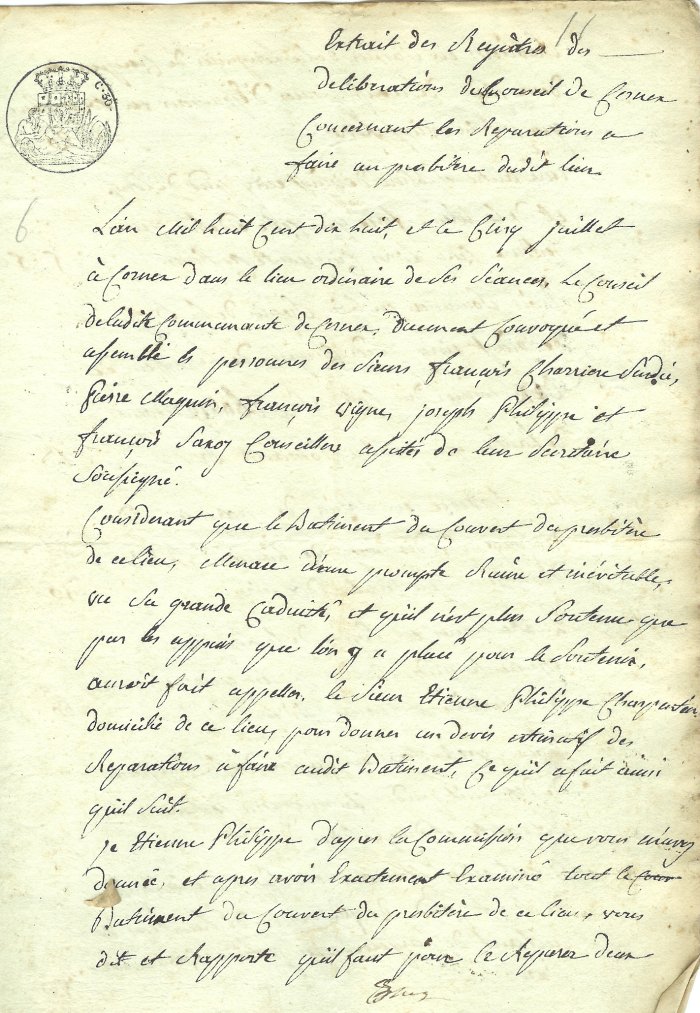 16
Extrait des Regitres des
deliberations du Conseil de Cernex
Concernant les Reparations a
faire au presbitère dudit lieu
C. 30.
6
L'an Mil huit Cent dix huit, et le Cinq juillet
à Cernex dans le lieu ordinaire de ses séances, Le Conseil
de ladite Communaute de Cernex, duement Convoqué et
assemblé es personnes des sieurs françois Charriere Sindic,
Pierre Magnin, françois vigne, joseph Philippe et
françois Saxoz Conseillers assistés de leur Secretaire
Soussigné.
Considerant que le Batiment du Couvert du presbitère
de ce lieu, Menace d'une prompte Ruine et inévitable,
vu sa grande Caducité, et qu'il n'est plus Soutenu que
par les appuis que l'on y a placé pour le Soutenir,
auroit fait appeller, le sieur Etienne Philippe Charpentier
domicilié de ce lieu, pour donner un devis estimatif des
Reparations à faire audit Batiment, Ce qu'il a fait ainsi
qu'il suit.
Je Etienne Philippe d'apres la Commission que vous m'avez
donnée, et apres avoir Exactement Examiné tout le
Batiment du Couvert du presbitère de ce lieu, vous
dit et Rapporte qu'il faut pour le Reparer deux